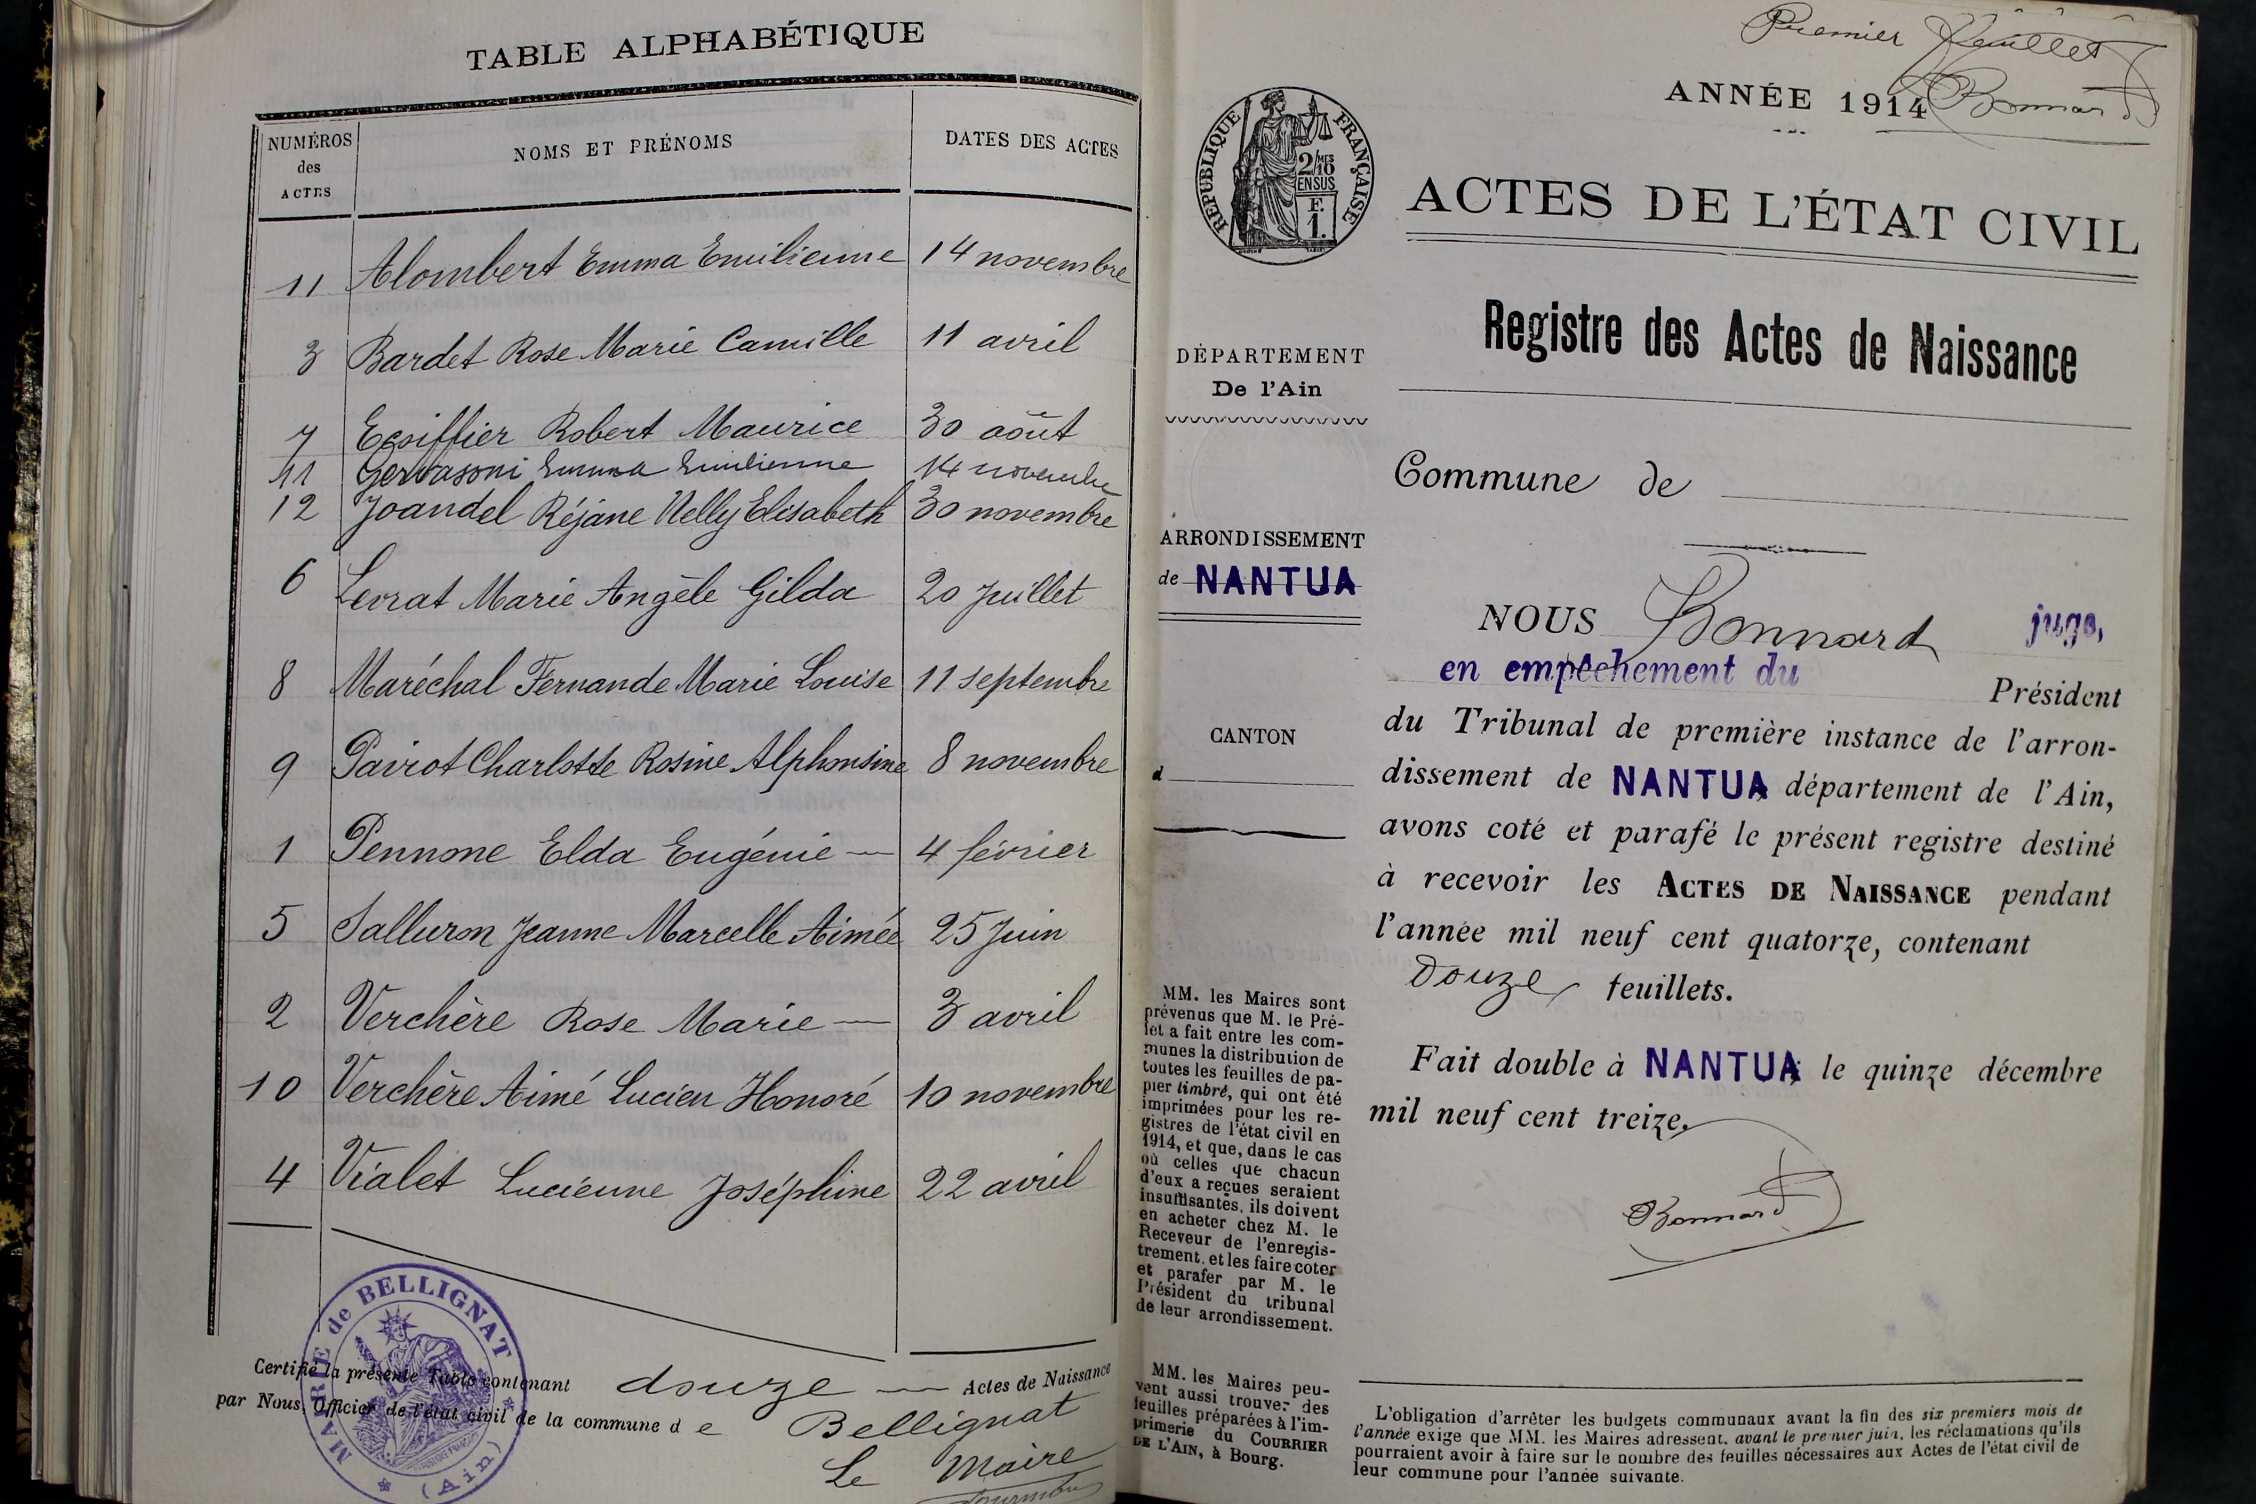 TABLE ALPHABÉTIQUE
NUMÉROS des ACTES
NOMS ET PRÉNOMS
DATES DES ACTES
11 Alombert Emma Emilienne 14 novembre
3 Bardet Rose Marie Camille 11 avril
7 Ecoiffier Robert Maurice 30 août
11 Gervasoni Emma Emilienne 14 novembre
12 Joandel Réjane Nelly Elisabeth 30 novembre
6 Levrat Marie Angèle Gilda 20 Juillet
8 Maréchal Fernande Marie Louise 11 septembre
9 Pairot Charlotte Rosine Alphonsine 8 novembre
1 Pennone Elda Eugénie — 4 février
5 Salluron Jeanne Marcelle Aimée 25 Juin
2 Verchère Rose Marie — 3 avril
10 Verchère Aimé Lucien Honoré 10 novembre
4 Vialet Lucienne Joséphine 22 avril
MAIRIE de BELLIGNAT
(Ain)
Certifié la présente Table contenant douze — Actes de Naissance
par Nous, Officier de l'état civil de la commune de Bellignat
Le Maire
Premier feuillet
Bonnard
ANNÉE 1914
RÉPUBLIQUE FRANÇAISE
2/10 MES
EN SUS
F.
1.
ACTES DE L'ÉTAT CIVIL
Registre des Actes de Naissance
DÉPARTEMENT
De l'Ain
Commune de
ARRONDISSEMENT
de NANTUA
CANTON
d
NOUS Bonnard juge,
en empêchement du
Président
du Tribunal de première instance de l'arron-
dissement de NANTUA département de l'Ain,
avons coté et parafé le présent registre destiné
à recevoir les ACTES DE NAISSANCE pendant
l'année mil neuf cent quatorze, contenant
Douze feuillets.
Fait double à NANTUA le quinze décembre
mil neuf cent treize.
Bonnard
MM. les Maires sont
prévenus que M. le Pré-
fet a fait entre les com-
munes la distribution de
toutes les feuilles de pa-
pier timbré, qui ont été
imprimées pour les re-
gistres de l'état civil en
1914, et que, dans le cas
où celles que chacun
d'eux a reçues seraient
insuffisantes, ils doivent
en acheter chez M. le
Receveur de l'enregis-
trement, et les faire coter
et parafer par M. le
Président du tribunal
de leur arrondissement.
MM. les Maires peu-
vent aussi trouver des
feuilles préparées à l'im-
primerie du COURRIER
DE L'AIN, à Bourg.
L'obligation d'arrêter les budgets communaux avant la fin des six premiers mois de
l'année exige que MM. les Maires adressent, avant le premier juin, les réclamations qu'ils
pourraient avoir à faire sur le nombre des feuilles nécessaires aux Actes de l'état civil de
leur commune pour l'année suivante.